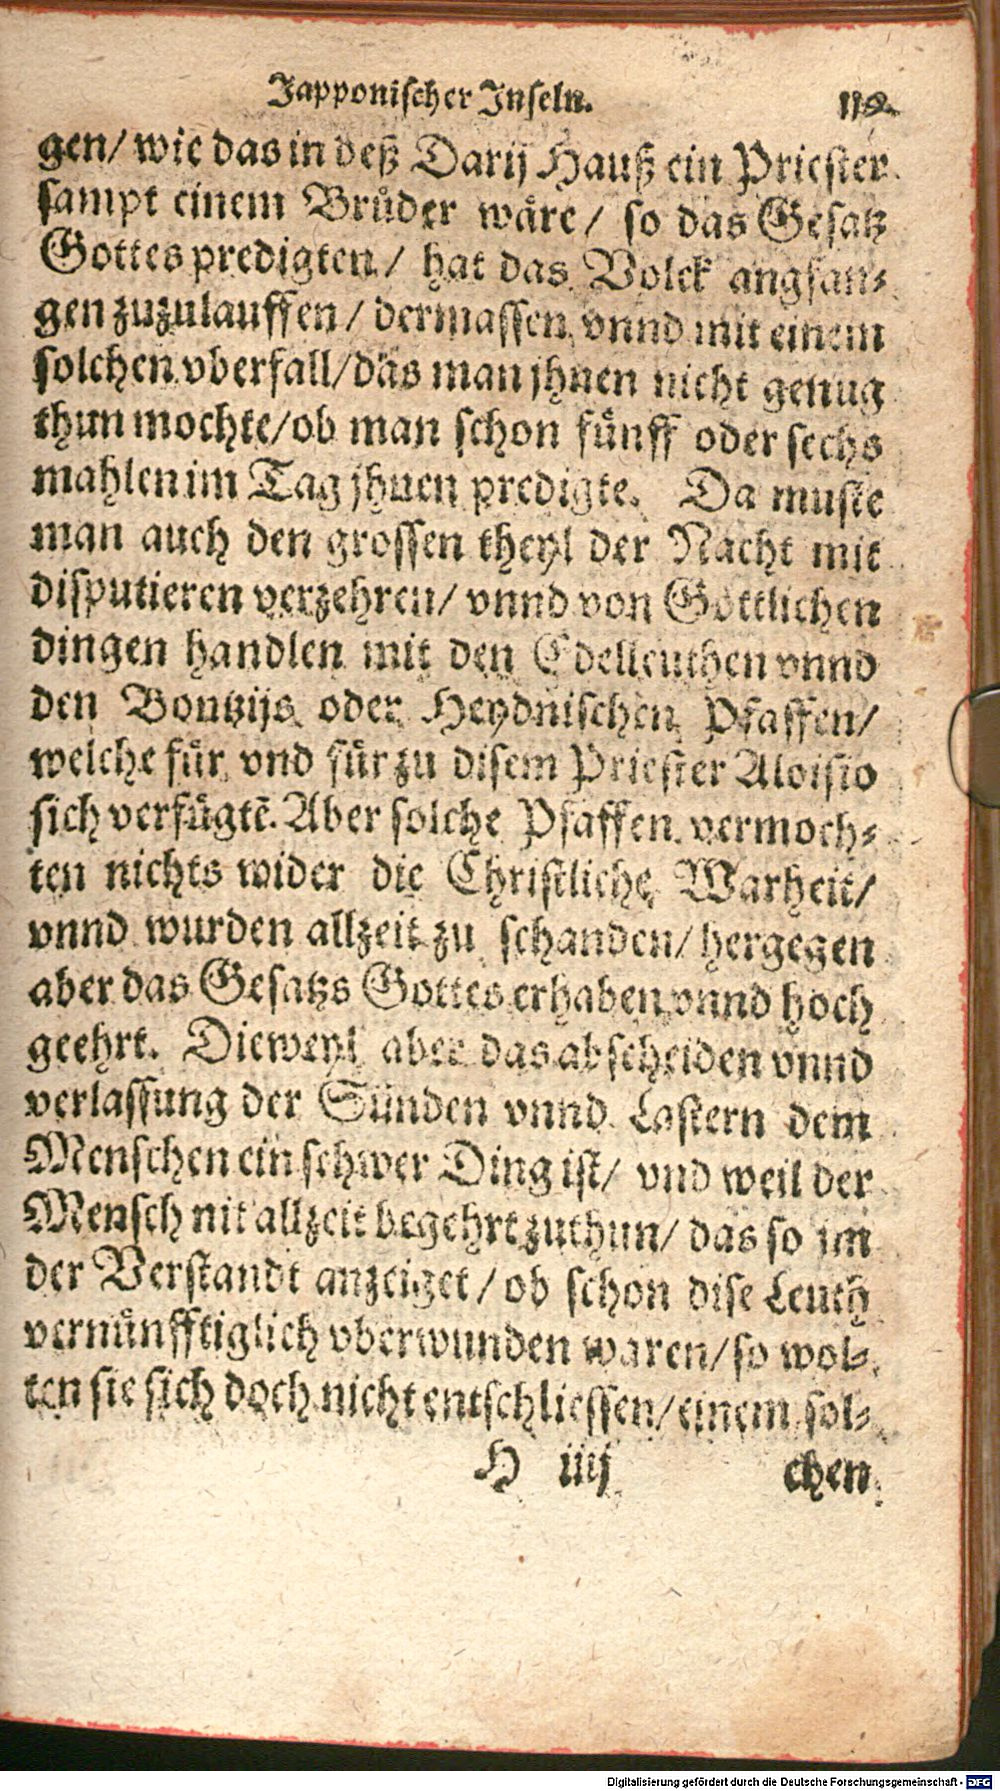 Japponischer Inseln. 119.
gen/ wie das in deß Darij Hauß ein Priester
sampt einem Brůder wäre/ so das Gesatz
Gottes predigten/ hat das Volck angfan-
gen zuzulauffen/ dermassen vnnd mit einem
solchen vberfall/ das man jhnen nicht genug
thun mochte/ ob man schon fünff oder sechs
mahlen im Tag jhnen predigte. Da muste
man auch den grossen theyl der Nacht mit
disputieren verzehren/ vnnd von Göttlichen
dingen handlen mit den Edelleuthen vnnd
den Bontzijs oder Heydnischen Pfaffen/
welche für vnd für zu disem Priester Aloisio
sich verfügtē. Aber solche Pfaffen vermoch-
ten nichts wider die Christliche Warheit/
vnnd wurden allzeit zu schanden/ hergegen
aber das Gesatzs Gottes erhaben vnnd hoch
geehrt. Dieweyl aber das abscheiden vnnd
verlassung der Sünden vnnd Lastern dem
Menschen ein schwer Ding ist/ vnd weil der
Mensch nit allzeit begehrt zuthun/ das so jm
der Verstandt anzeiget/ ob schon dise Leuth
vernünfftiglich vberwunden waren/ so wol-
ten sie sich doch nicht entschliessen/ einem sol-
H iiij chen
Digitalisierung gefördert durch die Deutsche Forschungsgemeinschaft - DFG